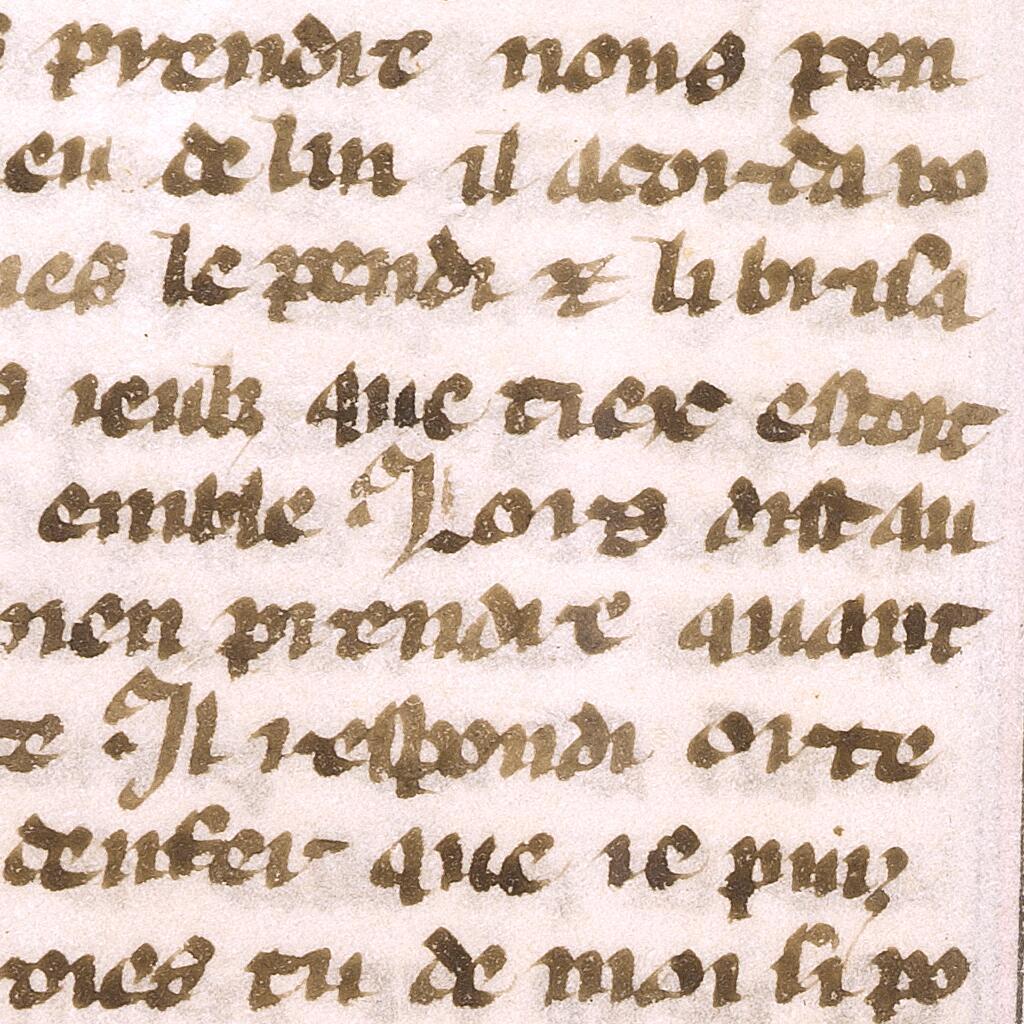 s prendre nous pen
eu de lin il acorda vo
ues le pendi ⁊ li brisa
s ieulz que tier estoit
emble Lors dist au
men prendre quant
te Il respondi or te
denfer que ie puis
voies tu de moi si po